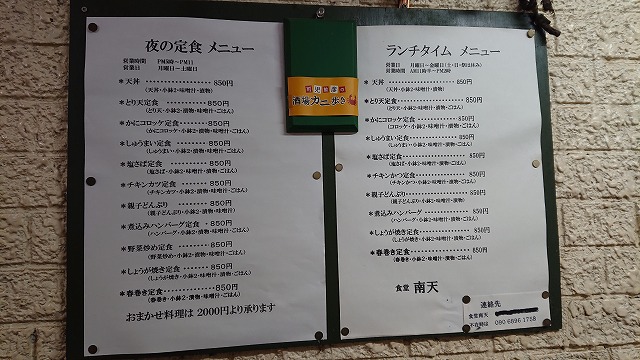 夜の定食 メニュー
営業時間 PM5時～PM11
営業日 月曜日～土曜日
＊天丼 ・・・・・・・・・・・・・・・850円
(天丼・小鉢2・味噌汁・漬物)
＊とり天定食 ・・・・・・・・・・850円
(とり天・小鉢2・漬物・味噌汁・ごはん)
＊かにコロッケ定食・・・・・850円
(かにコロッケ・小鉢2・漬物・味噌汁・ごはん)
＊しゅうまい定食 ・・・・・・850円
(しゅうまい・小鉢2・漬物・味噌汁・ごはん)
＊塩さば定食 ・・・・・・・・・・850円
(塩さば・小鉢2・漬物・味噌汁・ごはん)
＊チキンカツ定食 ・・・・・・850円
(チキンカツ・小鉢2・漬物・味噌汁・ごはん)
＊親子どんぶり ・・・・・・・・850円
(親子どんぶり・小鉢2・漬物・味噌汁)
＊煮込みハンバーグ定食 ・850円
(ハンバーグ・小鉢2・漬物・味噌汁・ごはん)
＊野菜炒め定食 ・・・・・・・・850円
(野菜炒め・小鉢2・漬物・味噌汁・ごはん)
＊しょうが焼き定食 ・・・・850円
(しょうが焼き・小鉢2・漬物・味噌汁・ごはん)
＊春巻き定食 ・・・・・・・・・・850円
(春巻き・小鉢2・漬物・味噌汁・ごはん)
おまかせ料理は 2000円より承ります
酒場カニ歩き
ランチタイム メニュー
営業日 月曜日～金曜日(土・日・祭日は休み)
営業時間 AM11時半～PM2時
＊天丼 ・・・・・・・・・・・・・・・850円
(天丼・小鉢2・味噌汁・漬物)
＊とり天定食・・・・・・・・・・850円
(とり天・小鉢2・漬物・味噌汁・ごはん)
＊かにコロッケ定食・・・・・850円
(コロッケ・小鉢2・漬物・味噌汁・ごはん)
＊しゅうまい定食 ・・・・・・850円
(しゅうまい・小鉢2・漬物・味噌汁・ごはん)
＊塩さば定食・・・・・・・・・・850円
(塩さば・小鉢2・漬物・味噌汁・ごはん)
＊チキンかつ定食・・・・・・850円
(チキンかつ・小鉢2・漬物・味噌汁・ごはん)
＊親子どんぶり・・・・・・・・850円
(親子どんぶり・小鉢2・味噌汁・漬物)
＊煮込みハンバーグ・・・・850円
(ハンバーグ・小鉢2・漬物・味噌汁・ごはん)
＊しょうが焼き定食・・・・850円
(しょうが焼き・小鉢2・味噌汁・漬物・ごはん)
＊春巻き定食・・・・・・・・・・850円
(春巻き・小鉢2・漬物・味噌汁・ごはん)
食堂 南天
連絡先
食堂南天
不在時は 090 6896 1768